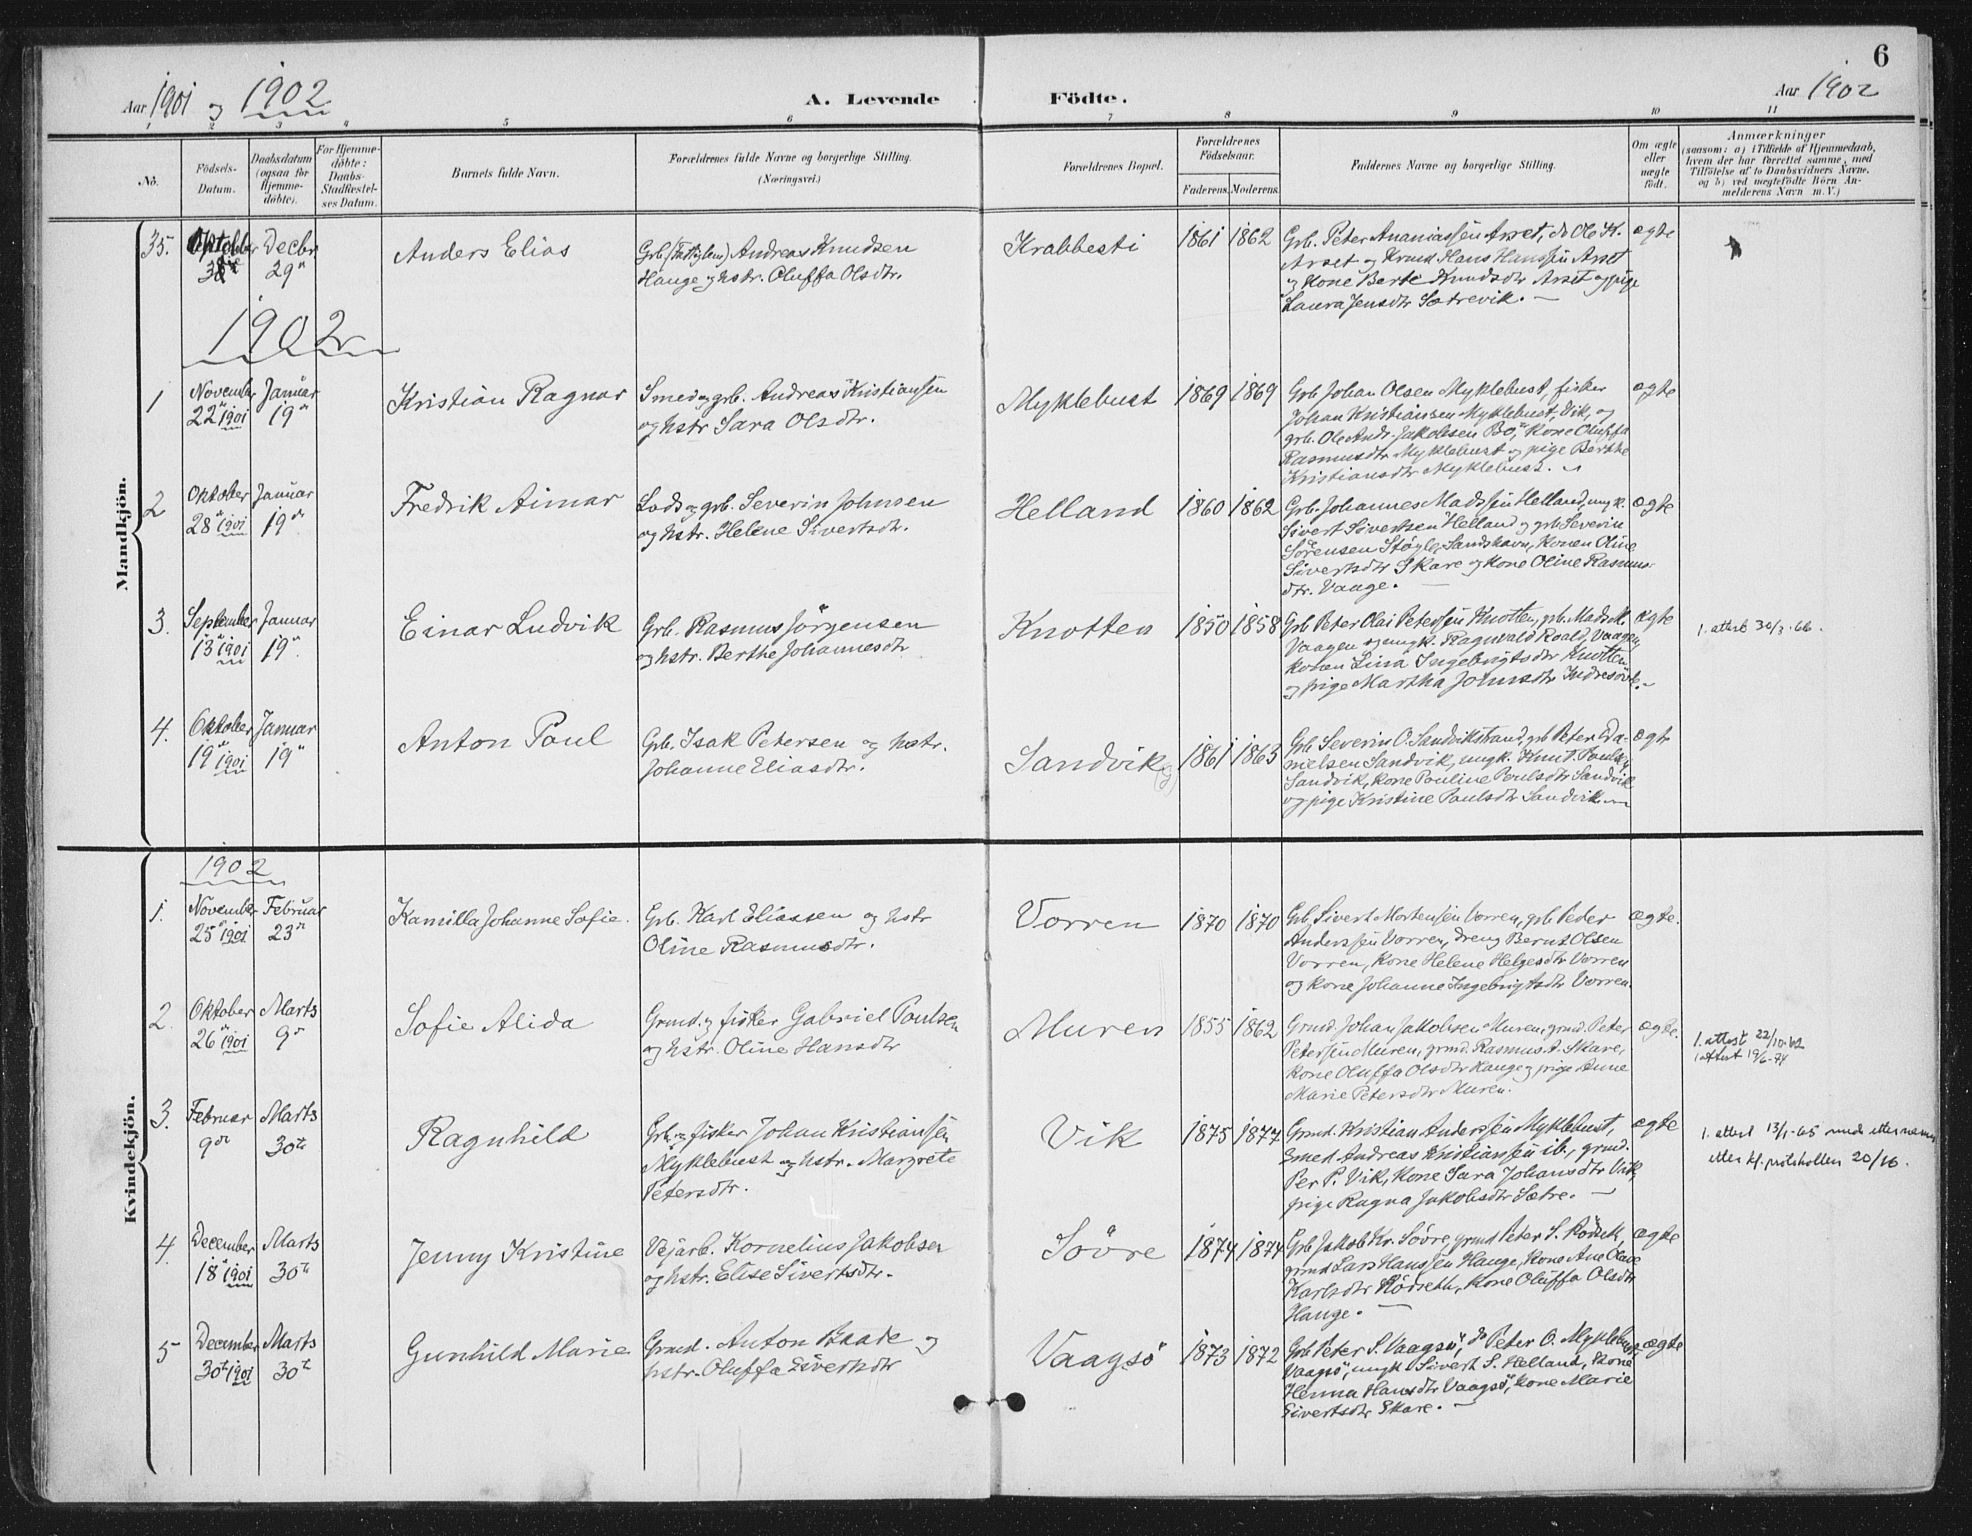 6
Aar 1901 og 1902
A. Levende Födte.
Aar 1902
1 2 3 4 5 6 7 8 9 10 11
No.
Födsels-
Datum.
Daabsdatum
(ogsaa for
Hjemme-
döbte).
For Hjemme-
döbte:
Daabs-
Stadfæstel-
ses Datum.
Barnets fulde Navn.
Forældrenes fulde Navne og borgerlige Stilling.
(Næringsvei.)
Forældrenes Bopæl.
Forældrenes
Födselsaar.
Faderens. Moderens.
Faddernes Navne og borgerlige Stilling.
Om ægte
eller
uægte
födt.
Anmærkninger
(saasom: a) i Tilfælde af Hjemmedaab,
hvem der har forrettet samme, med
Tilföielse af to Daabsvidners Navne,
og b) ved uægtefödte Börn An-
melderens Navn m. V.)
Mandkjön.
35. Decbr
29de
Anders Elias
Andreas Knudsen
Hauge og hstr. Oluffa Olsdtr.
Krabbesti
1861 1862
Grb. Peter Ananiassen Arset, do Ole H.
Arset og Hans Hanssen Arset
og kone Berte Knudsdtr Arset og pige
Laura Jensdtr Sætrevik. —
ægte
1902
1 November Januar
22de 1901 19de
Kristian Ragnar
Smed og grb. Andreas Kristiansen
og hstr Sara Olsdtr.
Myklebust
1869 1869
Grb Johan Olsen Myklebust, fisker
Johan Kristiansen Myklebust, Vik, og
grb. Ole Andr. Jakobsen Bö, Kone Oluffa
Rasmusdtr Myklebust og pige Berthe
Kristiansdtr Myklebust.
ægte
2 Oktober Januar
28de 1901 19de
Fredrik Aimar
Lods og grb. Severin Johnsen
og hstr. Helene Sivertsdtr.
Helland
1860 1862
Grb. Johannes Madssen Helland, ungk.
Sivert Sivertsen Helland og grb Severin
Sörensen Sandshavn, Konen Oline
Sivertsdtr Skare og kone Oline Rasmus-
dtr. Vaage. —
ægte
3. September Januar
13de 1901 19de
Einar Ludvik
Grb. Rasmus Jörgensen
og hstr. Berthe Johannesdtr
Knotten
1850 1858
Grb Peter Olai Petersen Knotten, grb. Mads K.
Vaagen og ungk. Ragnvald Roald, Vaagen,
konen Lina Ingebrigtsdtr Knotten
og pige Martha Johnsdtr
ægte
1. attest 30/3.66.
4. Oktober Januar
19de 1901 19de
Anton Paul
Grb. Isak Petersen og hstr.
Johanne Eliasdtr.
Sandvik
1861 1863
Grb Severin O. Sandvikstrand, grb Peter Da-
nielsen Sandvik, ungk. Knut Paulsen
Sandvik, kone Pauline Poulsdtr Sandvik
og pige Kristine Paulsdtr Sandvik —
ægte
Kvindekjön.
1902
1. November Februar
25de 1901 23de
Kamilla Johanne Sofie.
Grb. Karl Eliassen og hstr
Oline Rasmusdtr.
Vorren
1870 1870
Grb. Sivert Mortensen Vorren, grb Peder
Anderssen Vorren, dreng Bernt Olsen
Vorren, kone Helene Helgesdtr Vorren
og kone Johanne Ingebrigtsdtr Vorren.
ægte.
2. Oktober Marts
26de 1901 9de
Sofie Alida
Grmd. og fisker Gabriel Poulsen
og hstr. Oline Hansdtr
Muren
1855 1862
Grmd. Johan Jakobsen Muren, grmd. Peter
Petersen Muren, grmd. Rasmus A. Skare,
kone Oluffa Olsdtr Hauge og pige Anne
Marie Petersdtr Muren.
ægte.
1. attest 22/10-62
1 attest 19/6-74
3. Februar Marts
9de 30te
Ragnhild
Grb. og fisker Johan Kristiansen
Myklebust og hstr. Margrete
Petersdtr.
Vik
1875 1877
Grmd. Kristian Anderssen Myklebust,
smed Andreas Kristiansen ib., grmd.
Per P. Vik, kone Sara Johansdtr Vik,
pige Ragna Jakobsdtr Sætre. —
ægte
1. attest 13/1-65 med etternavn
etter kl. protokollen 20/16.
4. December Marts
18de 1901 30te
Jenny Kristine
Vejarb. Kornelius Jakobsen
og hstr. Elise Sivertsdtr.
Sövre
1874 1874
Grb Jakob Kr. Sövre, grmd Peter S. Rödset,
grmd Lars Hanssen Hauge, kone Ane Olave
Karlsdtr Rödseth, kone Oluffa Olsdtr
Hauge. —
ægte
5 December Marts
30te 1901 30te
Gunhild Marie
Grmd. Anton Baade og
hstr. Oluffa Sivertsdtr
Vaagsö
1873 1872
Grb Peter S. Vaagsö, do Peter O. Myklebust,
Vaagsö, ungk Sivert S. Helland, kone
Henna Hansdtr Vaagsö, kone Marie
Sivertsdtr Skare. —
ægte